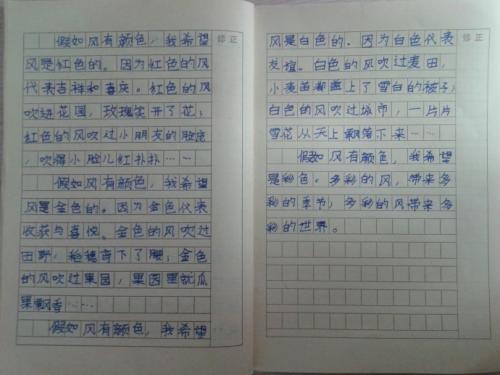 假如风有颜色，我希望
修正
风是红色的。因为红色的风
代表吉祥和喜庆。红色的风
吹进花园，玫瑰笑开了花；
红色的风吹过小朋友的脸庞
，吹得小脸儿红扑扑……
假如风有颜色，我希望
风是金色的。因为金色代表
收获与喜悦。金色的风吹过
田野，稻穗弯下了腰；金色
的风吹过果园，果园里就瓜
果飘香……
假如风有颜色，我希望
风是白色的。因为白色代表
修正
友谊。白色的风吹过麦田，
小麦苗都盖上了雪白的被子；
白色的风吹过城市，一片片
雪花从天上飘落下来……
假如风有颜色，我希望
是彩色。多彩的风，带来多
彩的季节；多彩的风带来多
彩的世界。